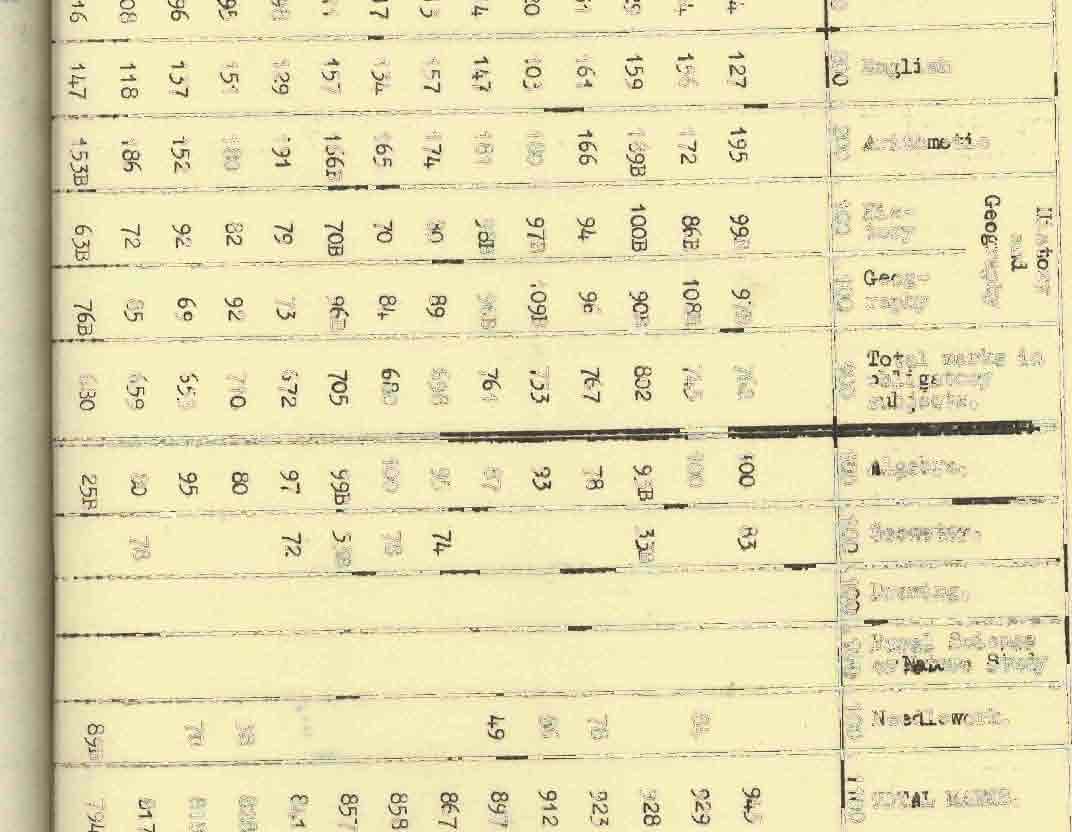 History
and
Geography
English
Arithmetic
His-
tory
Geog-
raphy
Total marks in
obligatory
subjects.
Algebra.
Geometry.
Drawing.
Rural Science
or Nature Study
Needlework.
TOTAL MARKS.
200 200 100 100 100 100 100 100
127 195 99B 97B 762 100 83 945
172 86B 108B 745 100 84 929
159 189B 100B 90B 802 93B 33B 928
166 94 96 767 78 78 923
20 103 180 97B 109B 753 93 66 912
147 181 98B 96B 761 87 49 897
157 174 80 89 698 95 74 867
17 134 165 70 84 680 100 78 858
157 166B 70B 96B 705 99B 53B 857
129 191 79 73 672 97 72 841
95 151 180 82 92 710 80 38 828
96 137 152 92 69 653 95 70 818
08 118 186 72 65 659 80 78 817
16 147 153B 63B 76B 680 25B 89B 794